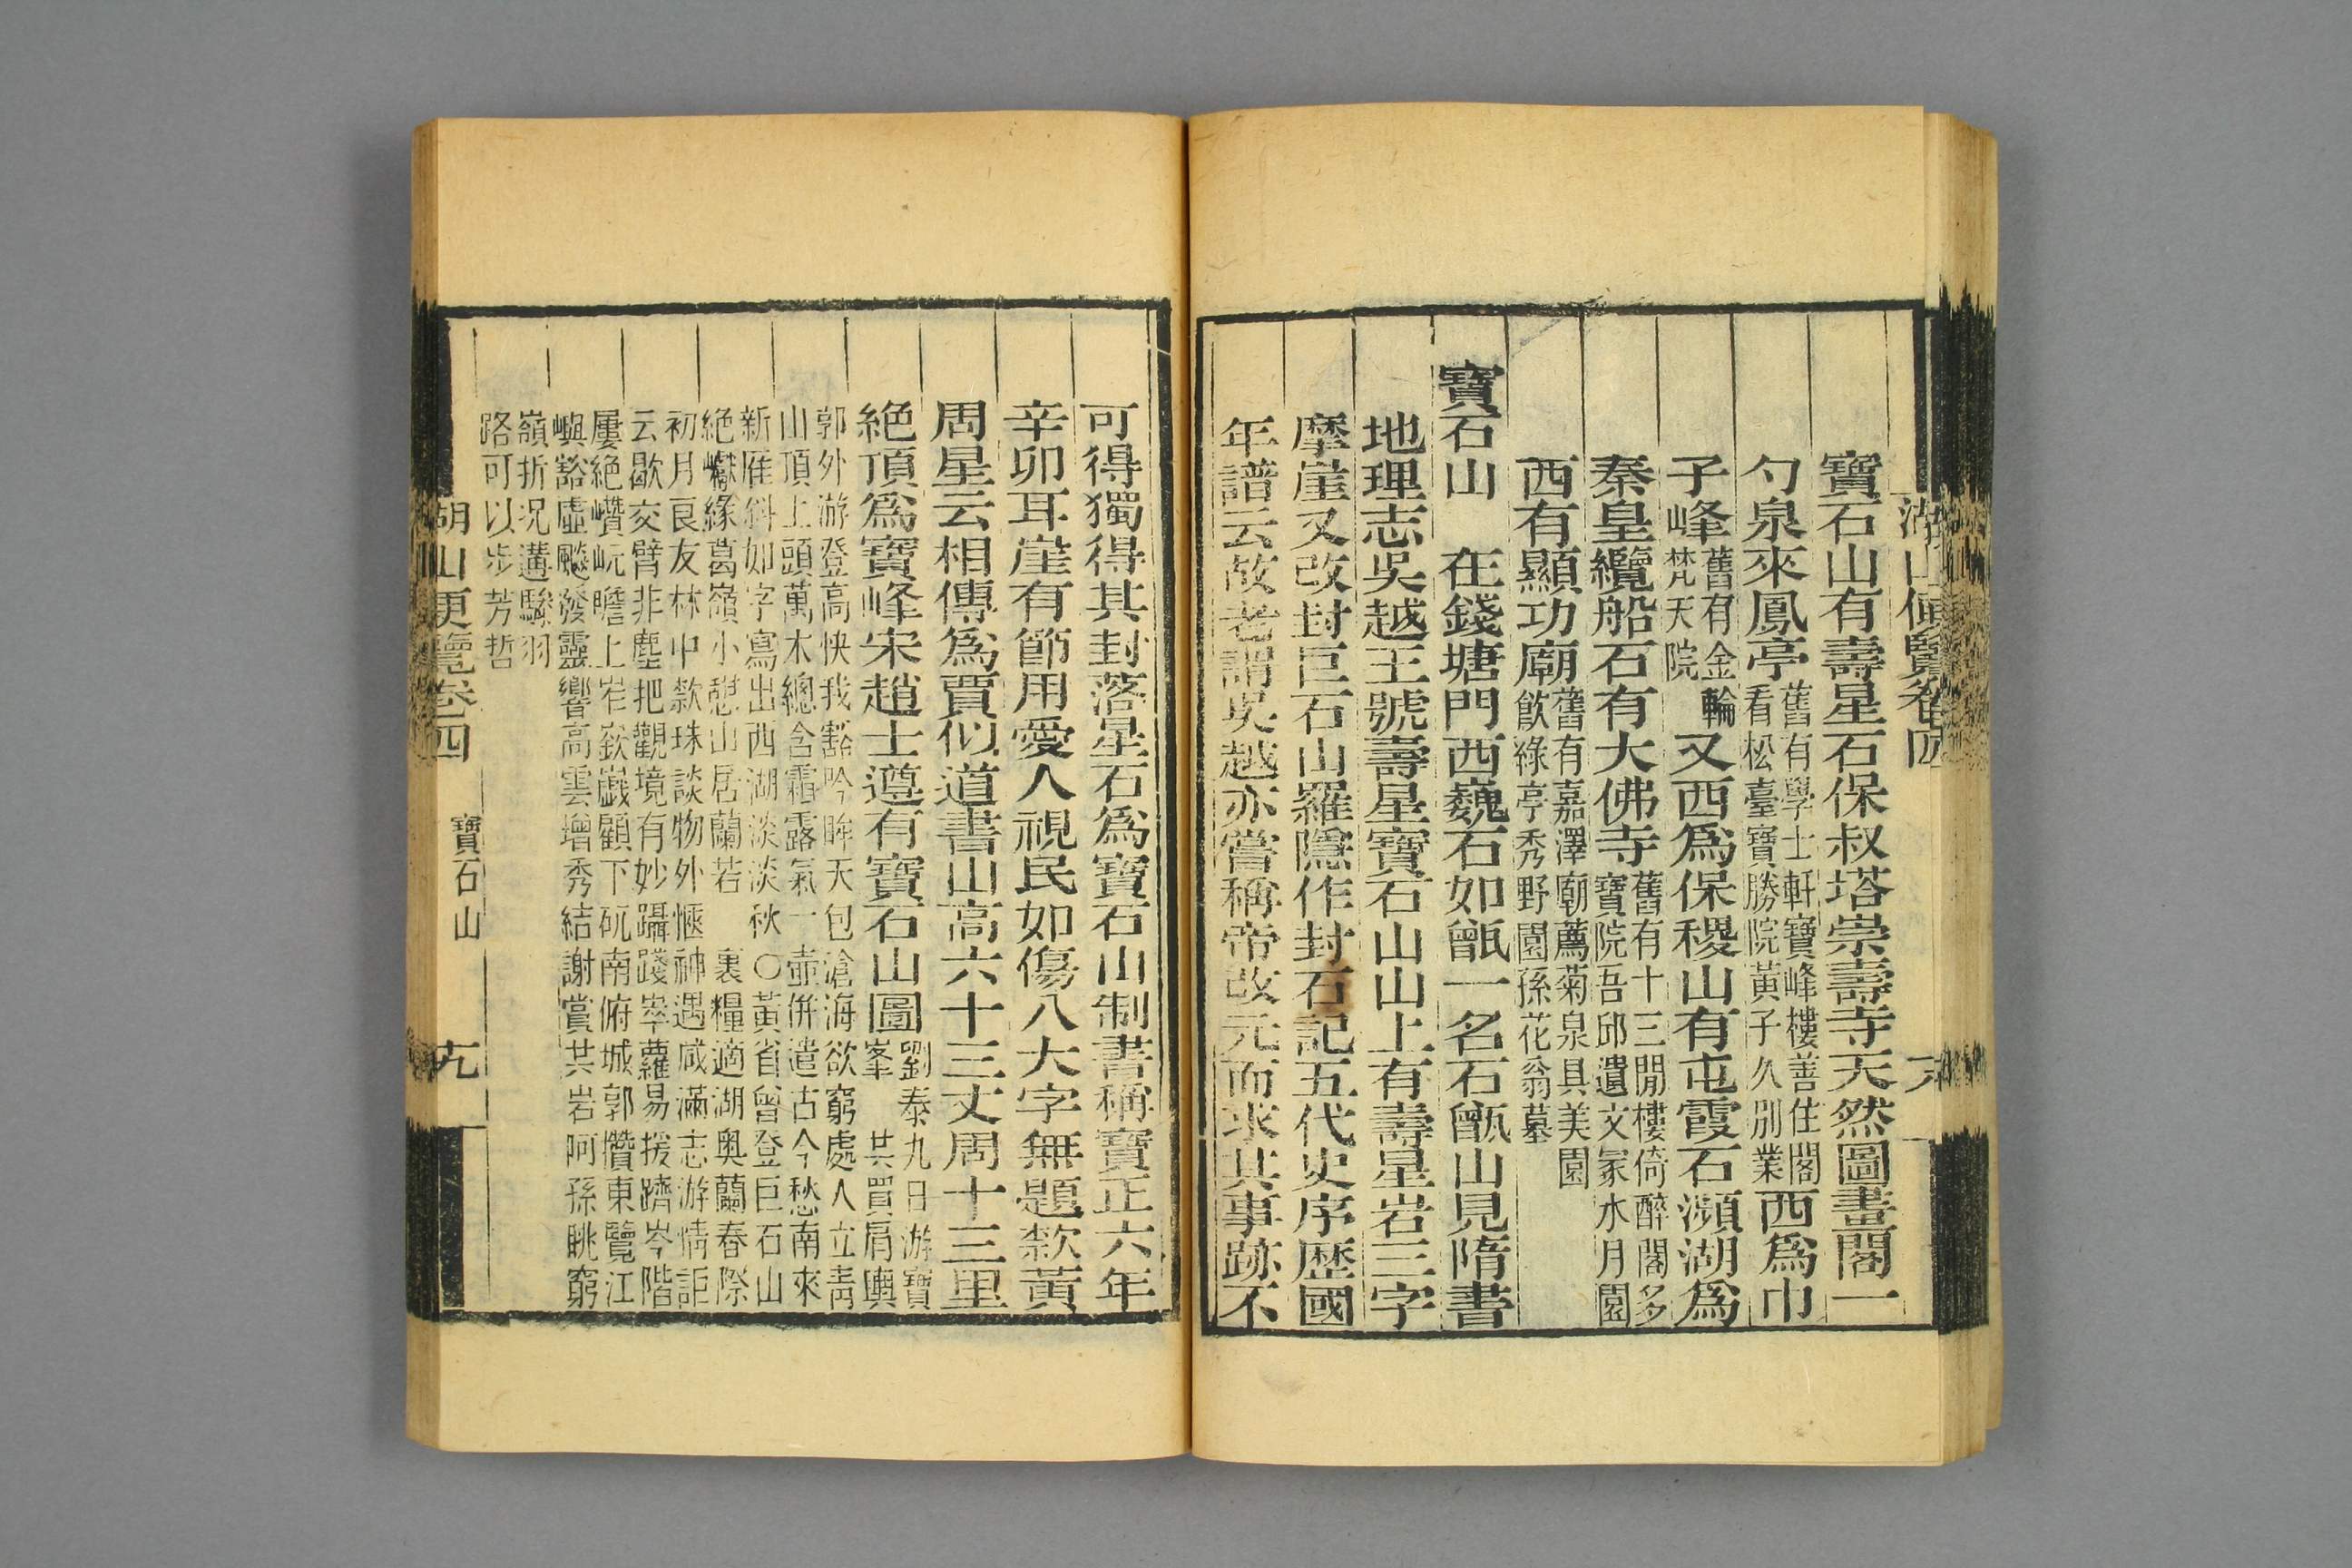 湖山便覽卷四
寶石山有壽星石保叔塔崇壽寺天然圖畫閣一
勺泉來鳳亭舊有學士軒寶峰樓善住閣看松臺寶勝院黃子久別業西爲巾
子峰舊有金輪梵天院又西爲保稷山有屯霞石瀕湖爲
秦皇纜船石有大佛寺舊有十三閒樓倚醉閣多寶院吾邱遺文冢水月園
西有顯功廟舊有嘉澤廟薦菊泉具美園飮綠亭秀野園孫花翁墓
寶石山 在錢塘門西巍石如甑一名石甑山見隋書
地理志吳越王號壽星寶石山山上有壽星岩三字
摩崖又改封巨石山羅隱作封石記五代史序歷國
年譜云故老謂吳越亦嘗稱帝改元而求其事跡不
可得獨得其封落星石爲寶石山制書稱寶正六年
辛卯耳崖有節用愛人視民如傷八大字無題欵黃
周星云相傳爲賈似道書山高六十三丈周十三里
絶頂爲寶峰宋趙士遵有寶石山圖劉泰九日游寶峯 共買肩輿
郭外游登高快我豁吟眸天包滄海欲窮處人立靑
山頂上頭萬木總含霜露氣一壺併遣古今愁南來
新雁斜如字寫出西湖淡淡秋○黃省曾登巨石山
絶巘緣葛嶺小憩山居蘭若 裹糧適湖奥蘭春際
初月良友林中欵珠談物外愜神遇咸滿志游情詎
云歇交臂非塵把觀境有妙躡踐崒蘿易援躋岑階
屢絶巑岏瞻上岝崟巇顧下矹南俯城郭攢東覽江
嶼豁虛飈發靈響高雲增秀結謝賞共岩阿孫眺窮
嶺折况遘驂羽
路可以步芳哲
湖山便覽卷四 寶石山 十九